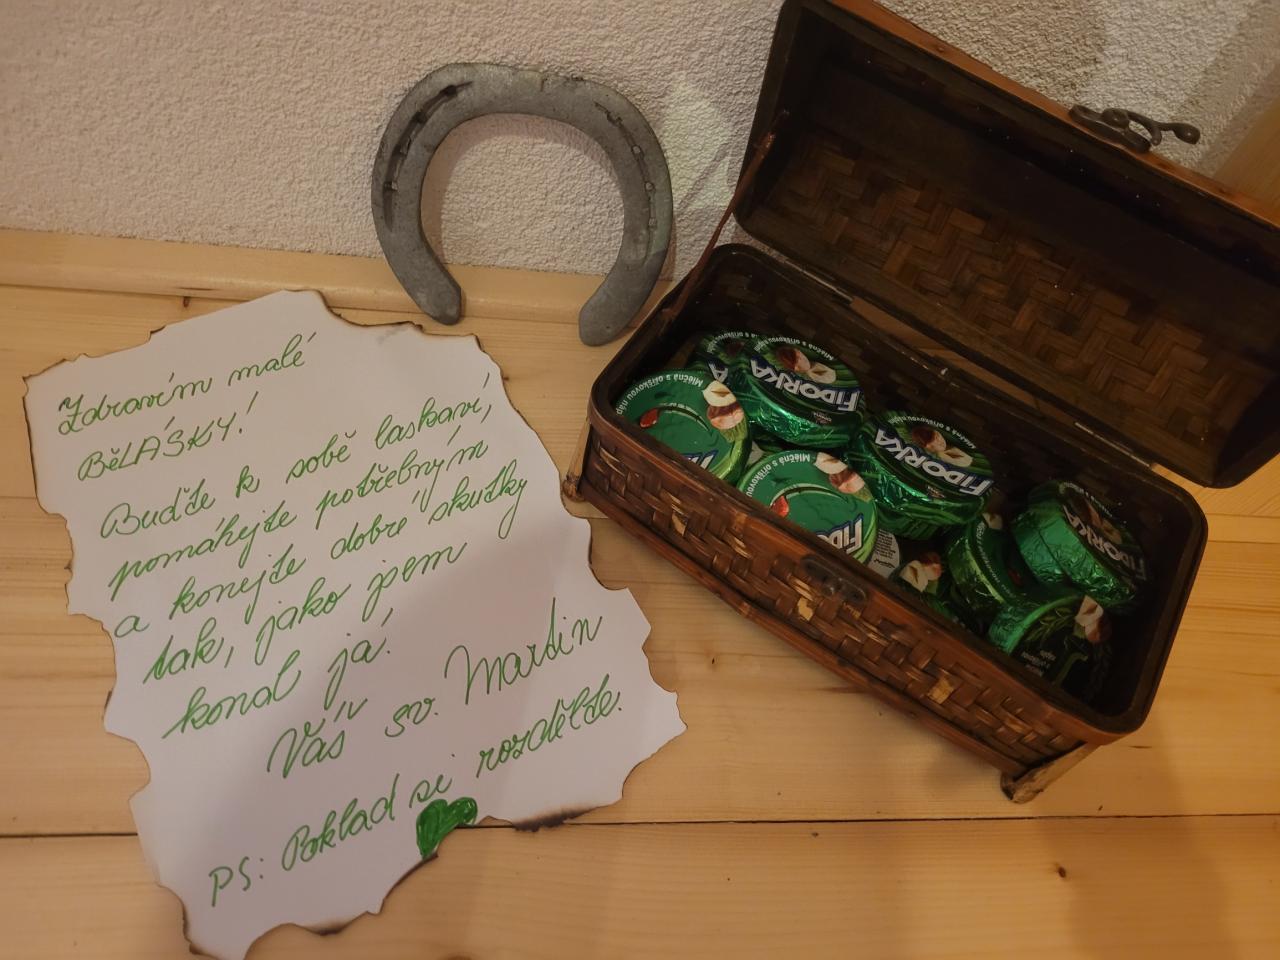 Zdravím malé
BěLÁSKY!
Buďte k sobě laskaví,
pomáhejte potřebným
a konejte dobré skutky
tak, jako jsem
konal já!
Váš sv. Martin
PS: Poklad si rozdělte.
FIDORKA
Mléčná s oříškovou náplní
Mléčná s oříškovou nápl
FIDORKA
Mléčná s oříškovou
FIDORKA
Mléčná s oříškovou
FIDORKA